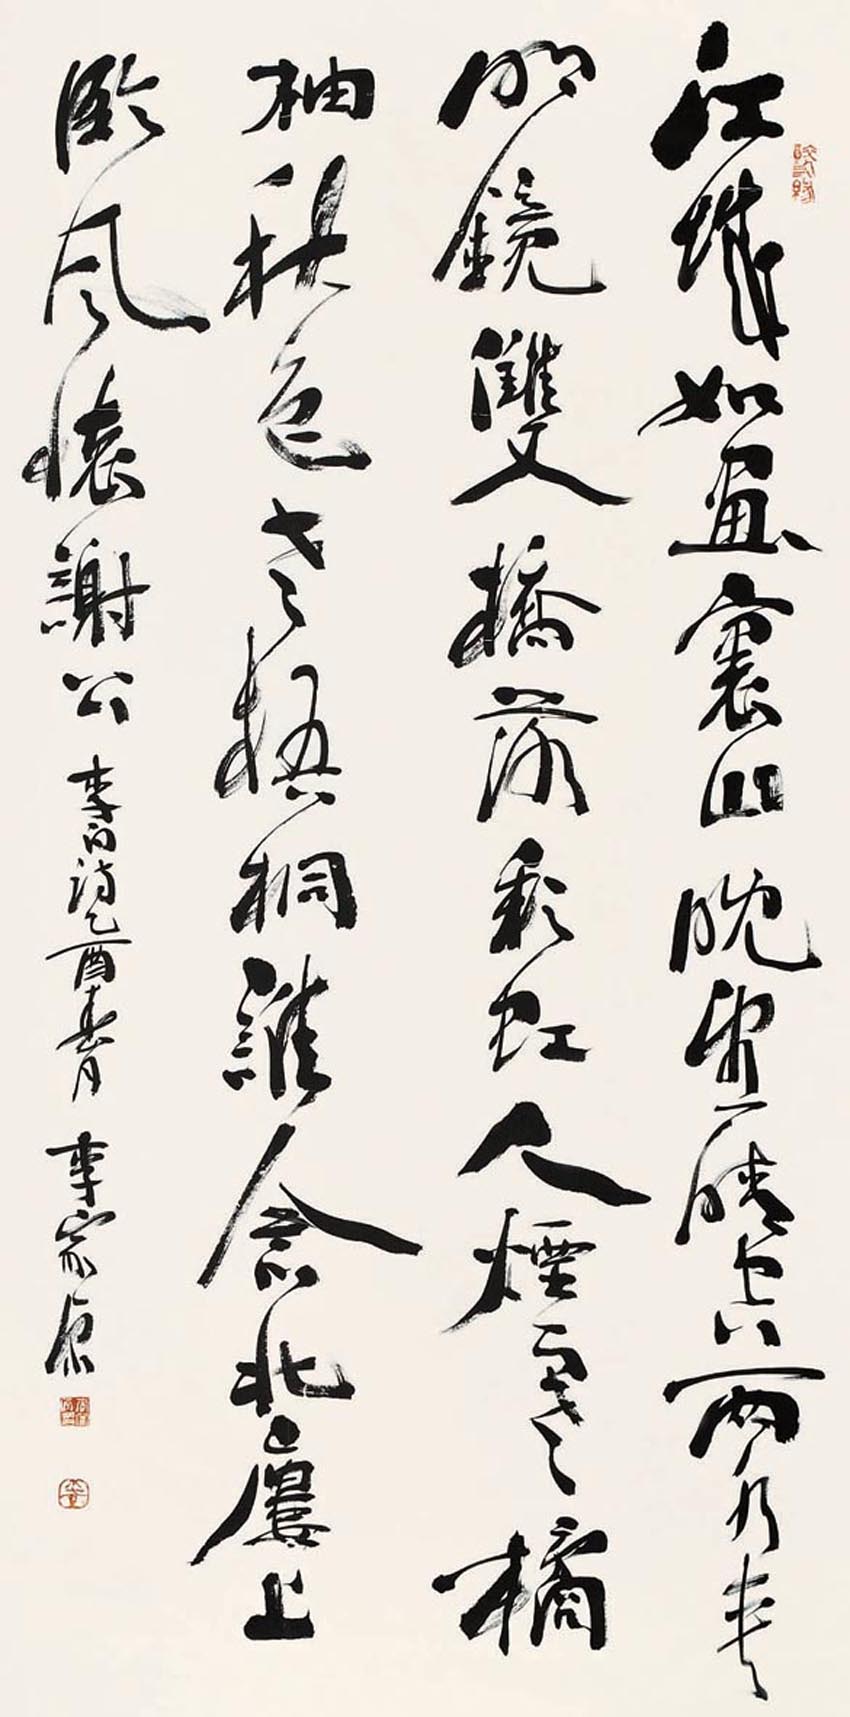 江城如畫裏山晚望晴空兩水夾
明鏡雙橋落彩虹人煙寒橘
柚秋色老梧桐誰念北樓上
臨風懷謝公 李白詩乙酉春月 李家原